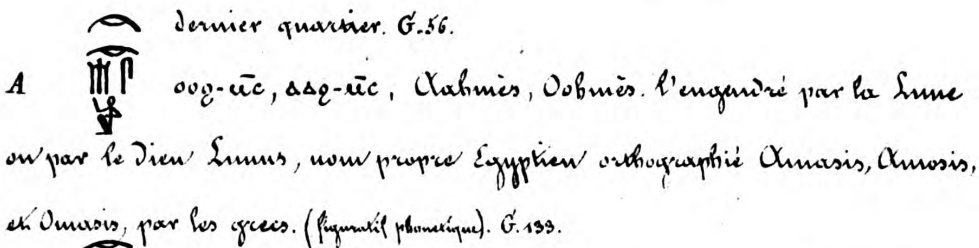 dernier quartier. G. 56.
A ⲟⲟϩ-ⲙ̅ⲥ, ⲁⲁϩ-ⲙ̅ⲥ, Aahmès, Oohmès. l'engendré par la Lune
ou par le Dieu Lunus, nom propre Egyptien orthographié Amasis, Amosis,
et Omasis, par les grecs. (figuratif phonétique). G. 133.